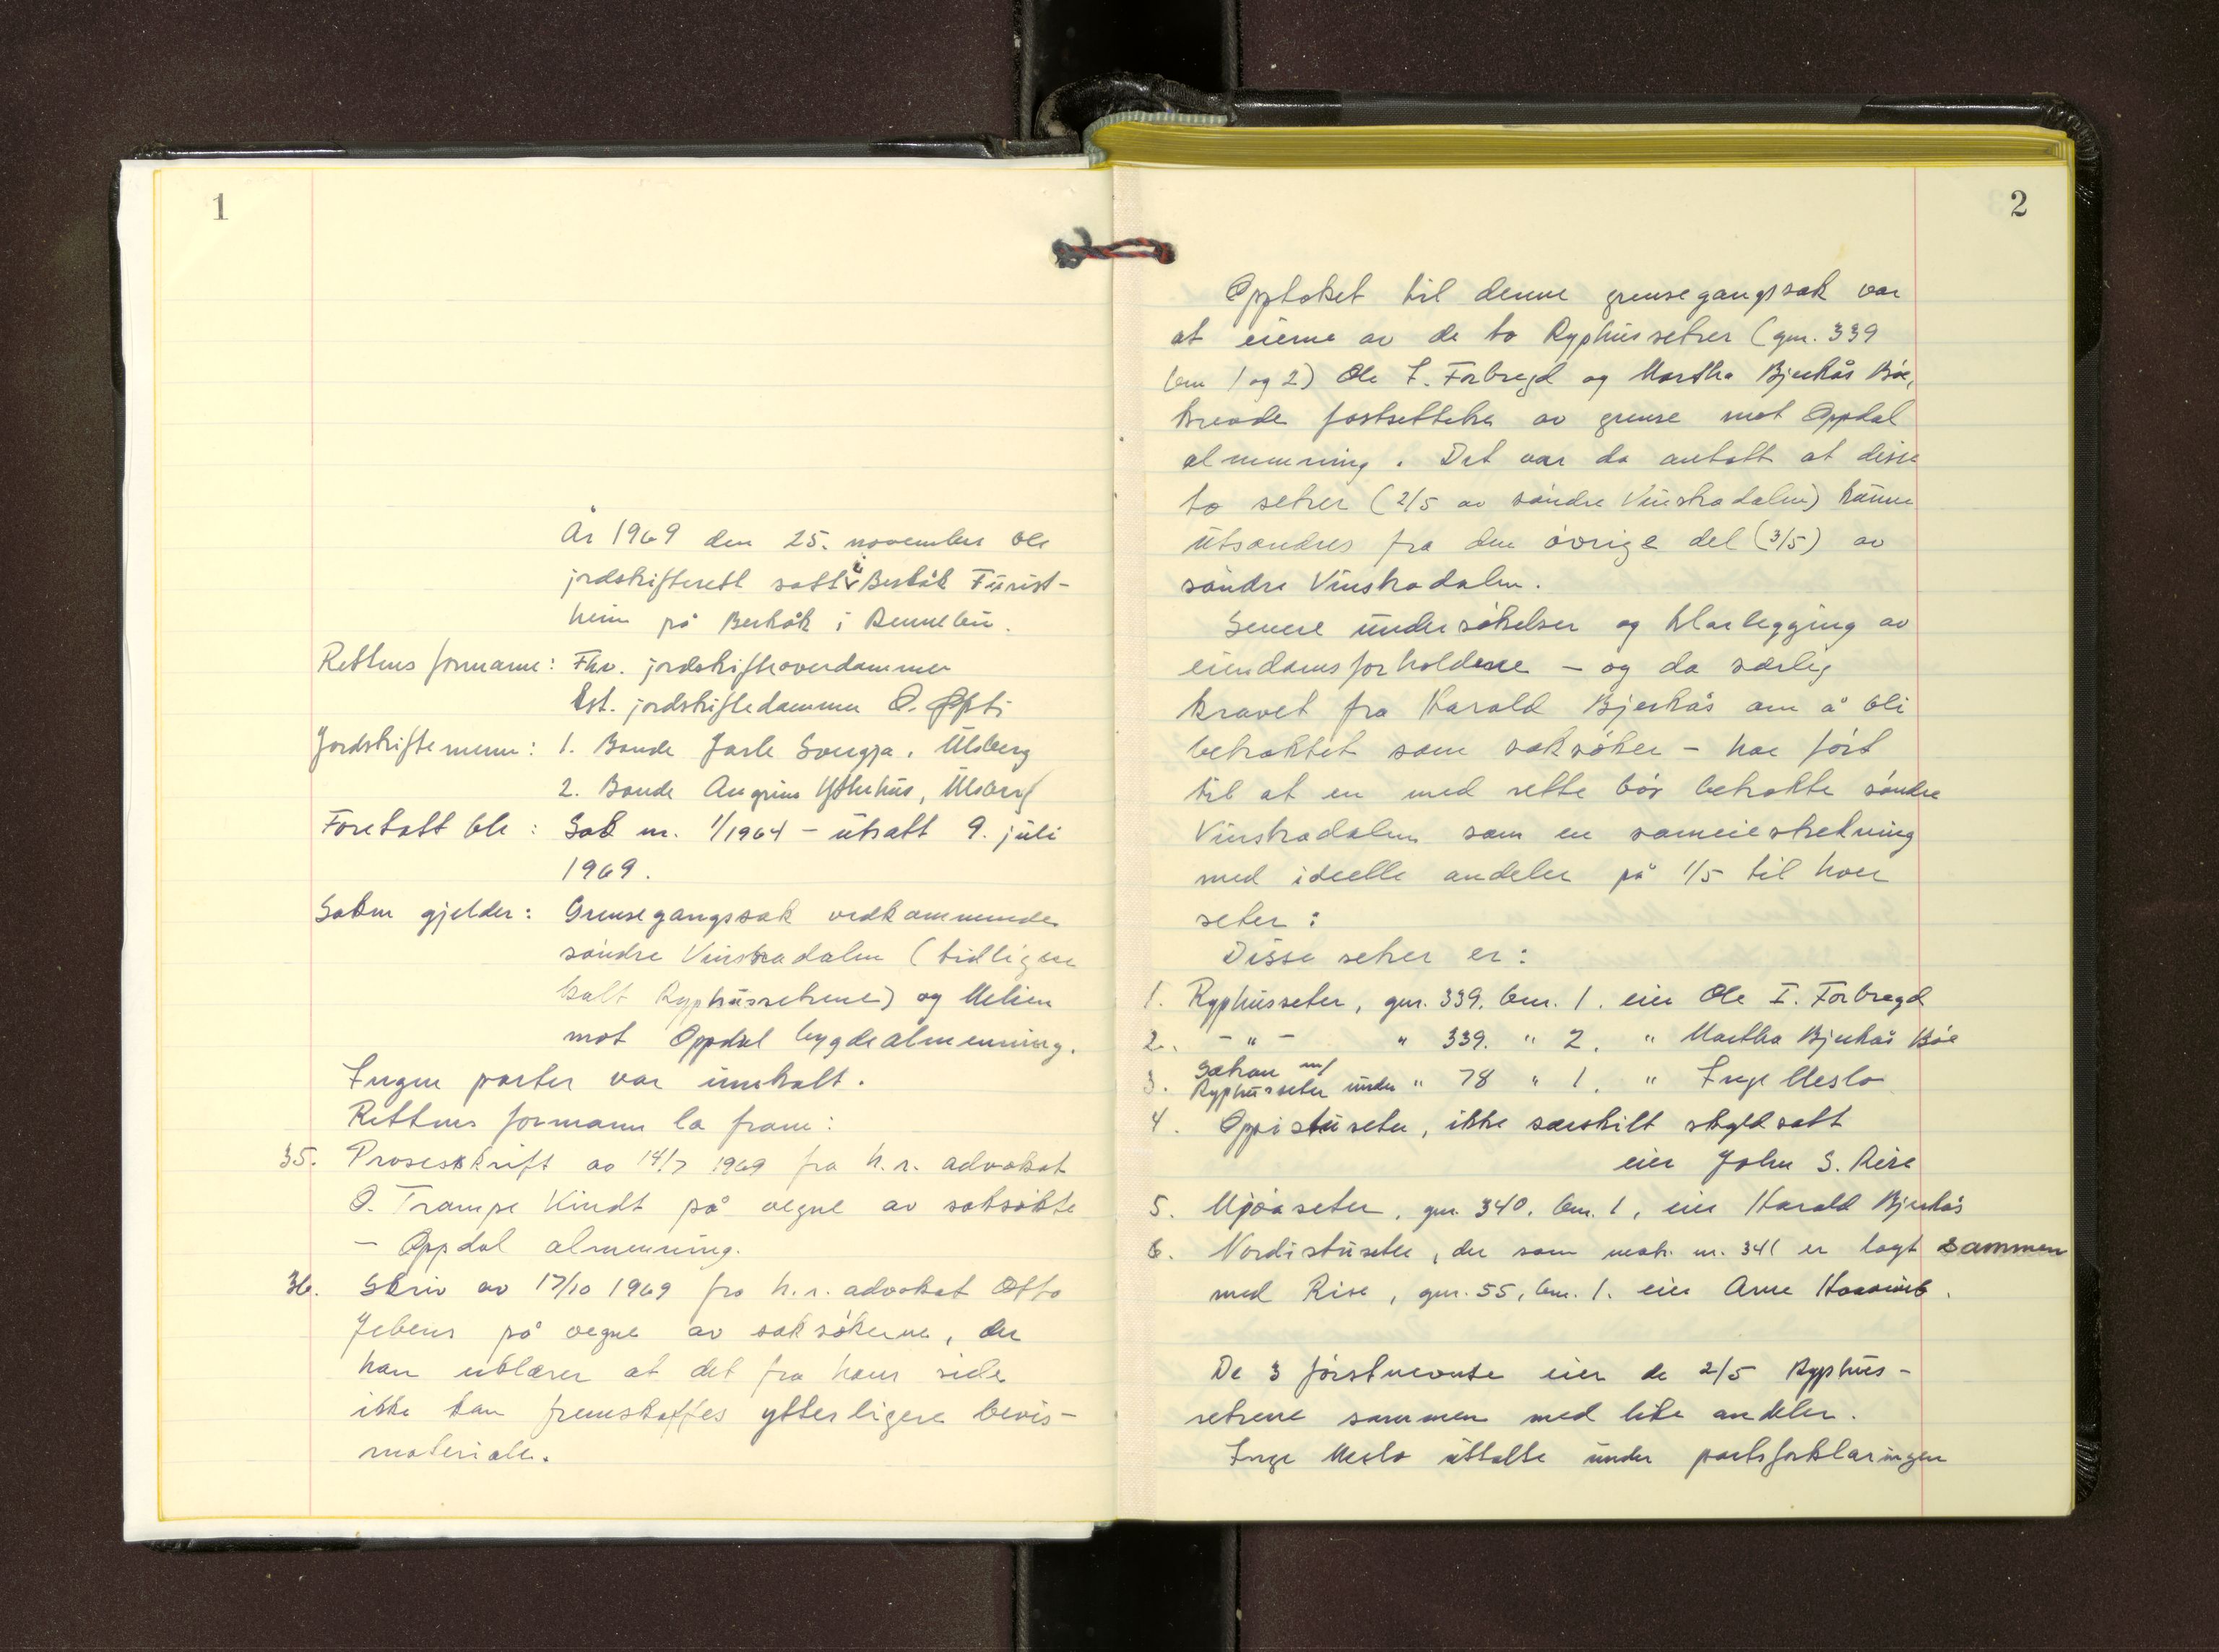 1
År 1969 den 25. november ble
jordskifterett satt i Berkåk Turist-
heim på Berkåk i Rennebu.
Rettens formann: Fhv. jordskifteoverdommer
kst. jordskiftedommer O. Opti
Jordskiftemenn: 1. Bonde Jarle Svergja, Ulsberg
2. Bonde Angrim Ytterhus, Ulsberg
Foretatt ble: Sak nr. 1/1964 - utsatt 9. juli
1969.
Saken gjelder: Grensegangssak vedkommende
søndre Vinstradalen (tidligere
kalt Ryphussetrene) og Melien
mot Oppdal bygdealmenning.
Ingen parter var innkalt.
Rettens formann la fram:
35. Prosesskrift av 14/7 1969 fra h.r. advokat
O. Trampe Kindt på vegne av saksøkte
- Oppdal almenning.
36. Skriv av 17/10 1969 fra h.r. advokat Otto
Jebens på vegne av saksøkerne, der
han erklærer at det fra hans side
ikke kan fremskaffes ytterligere bevis-
materiale.
2
Opptaket til denne grensegangssak var
at eierne av de to Ryphussetrer (gnr. 339
bnr 1 og 2) Ole I. Forbregd og Martha Bjerkås Bøe,
krevde fastsettelse av grense mot Oppdal
almenning. Det var da antatt at disse
to setrer (2/5 av søndre Vinstradalen) kunne
utsondres fra den øvrige del (3/5) av
søndre Vinstradalen.
Senere undersøkelser og klarlegging av
eiendomsforholdene - og da særlig
kravet fra Harald Bjerkås om å bli
betraktet som saksøker - har ført
til at en med rette bør betrakte søndre
Vinstradalen som en sameiestrekning
med ideelle andeler på 1/5 til hver
seter:
Disse setrer er:
1. Ryphusseter, gnr. 339. bnr. 1. eier Ole I. Forbregd
2. - " - " 339. " 2. " Martha Bjerkås Bøe
3. Sætran m/
Ryphusseter under " 78 " 1. " Inge Meslo
4. Oppistuseter, ikke særskilt skyldsatt
eier John S. Rise
5. Mjøaseter, gnr. 340. bnr. 1, eier Harald Bjerkås
6. Nordistuseter, der som matr. nr. 341 er lagt sammen
med Rise, gnr. 55, bnr. 1. eier Arne
De 3 førstnevnte eier de 2/5 Ryphus-
setrene sammen med like andeler.
Inge Meslo uttalte under partsforklaringen